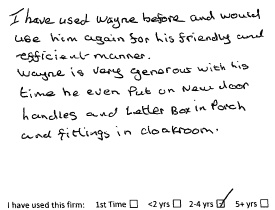 I have used Wayne before and would
use him again for his friendly and
efficient manner.
Wayne is very generous with his
time he even Put on New door
handles and Letter Box in Porch
and fittings in cloakroom.
I have used this firm: 1st Time ☐ <2 yrs ☐ 2-4 yrs ☑ 5+ yrs ☐